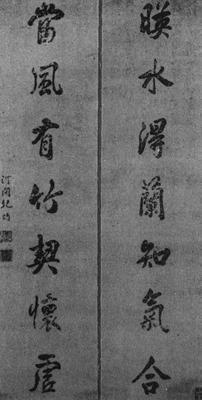 暎水得蘭知氣合
當風有竹契懷虛
河間紀昀